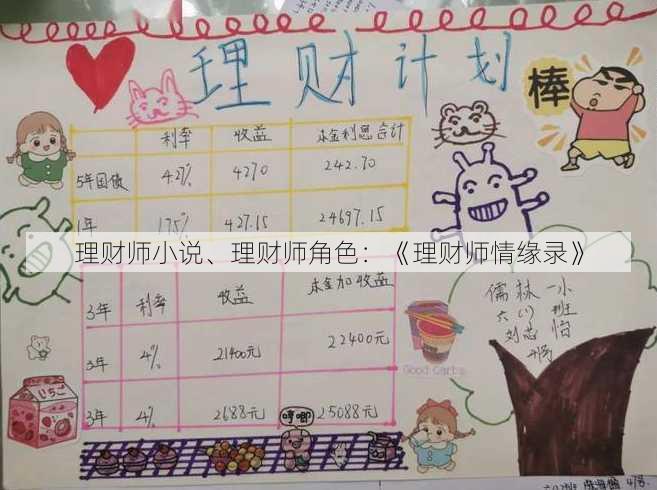 理财计划
棒
利率 收益 本金利息合计
5年国债 4.27% 4270 242.70
1年 1.75% 427.15 24697.15
理财师小说、理财师角色：《理财师情缘录》
3年 利率 收益 本金加收益
3年 4% 21400元 22400元
3年 4% 2688元 25088元
儒林一小
六(1)班
刘芯怡
4号
Good Carbs
いちご
哼唧